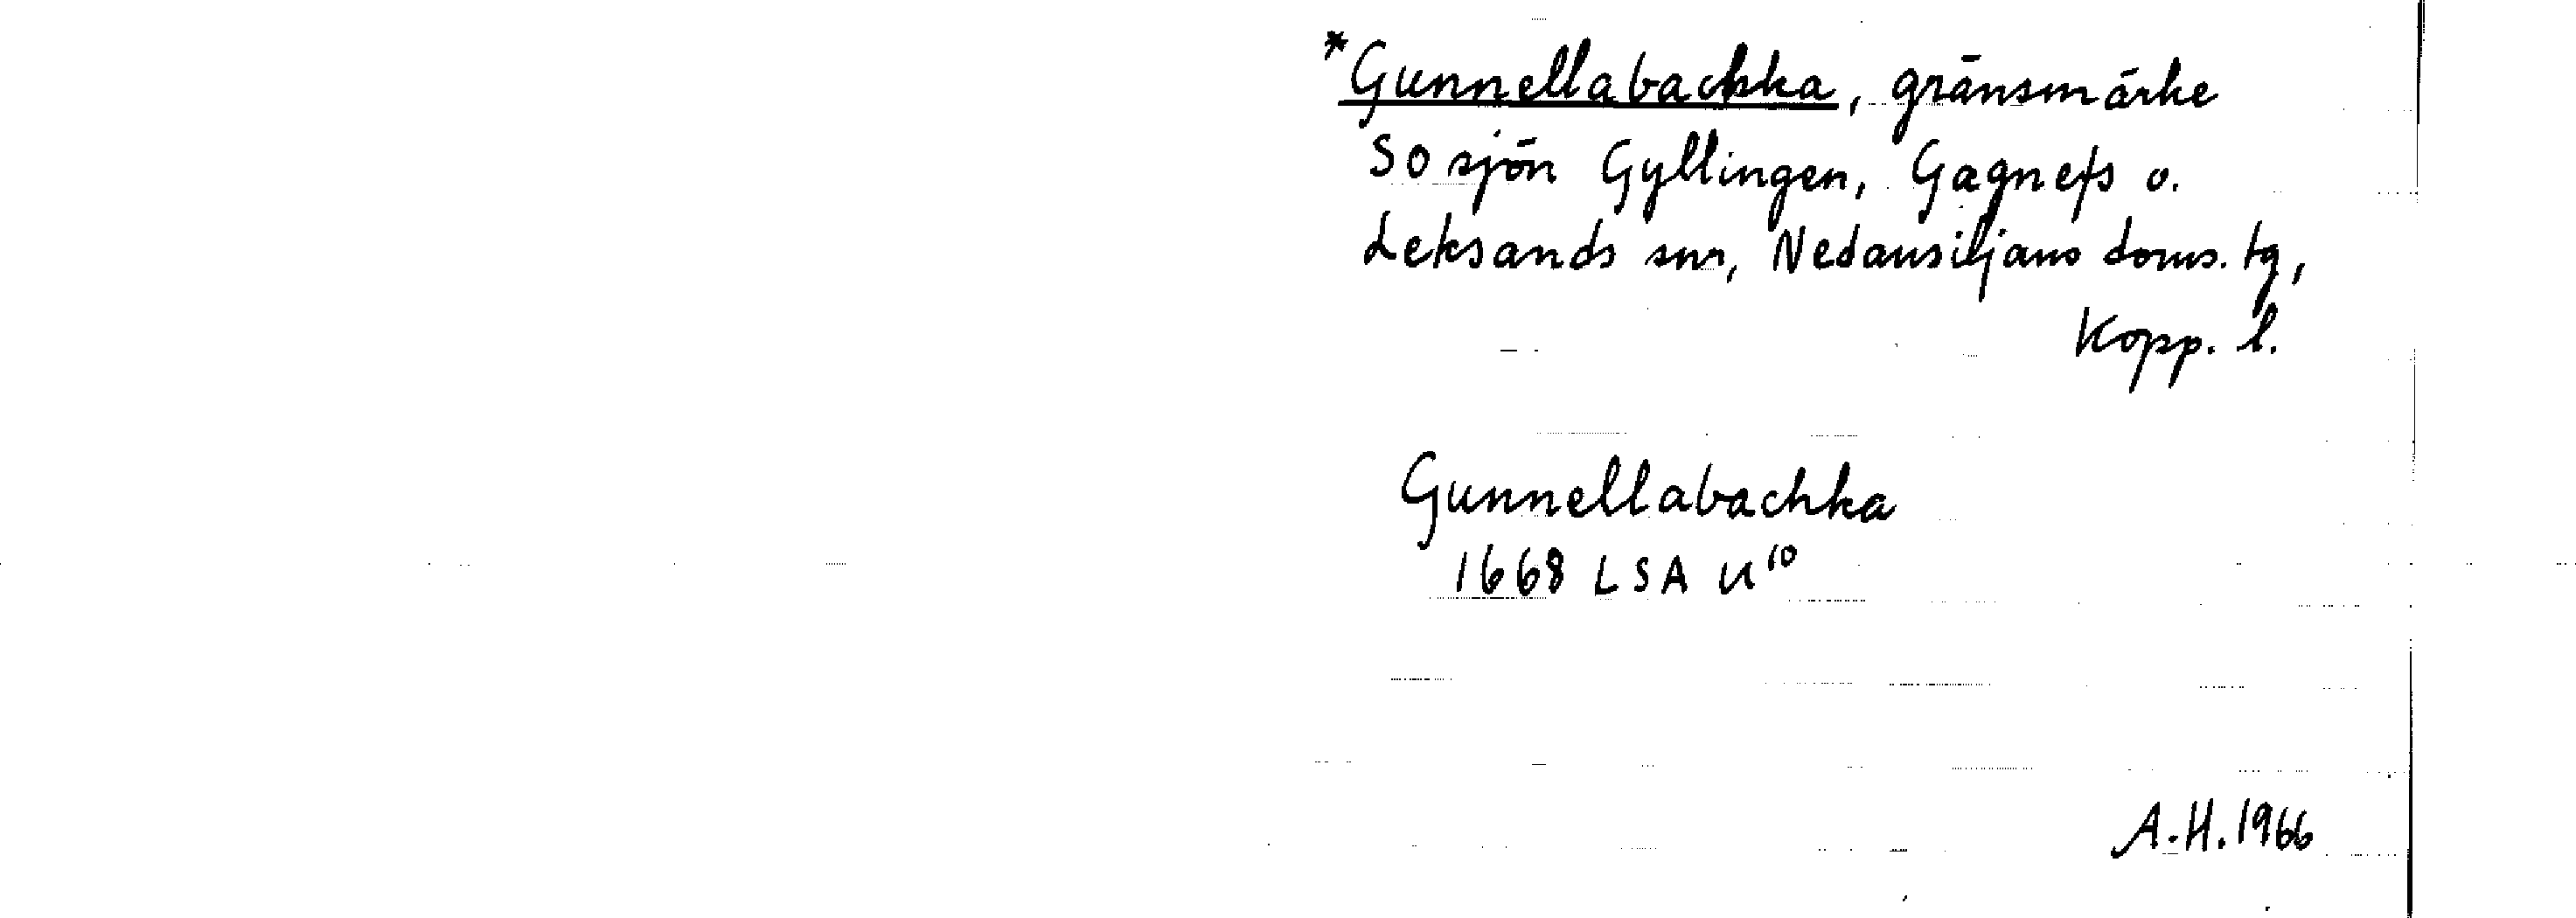 *Gunnellabachka, gränsmärke
SO sjön Gyllingen, Gagnefs o.
Leksands snr, Nedansiljans doms. tg,
Kopp. l.
Gunnellabachka
1668 LSA U¹⁰
A.H. 1966